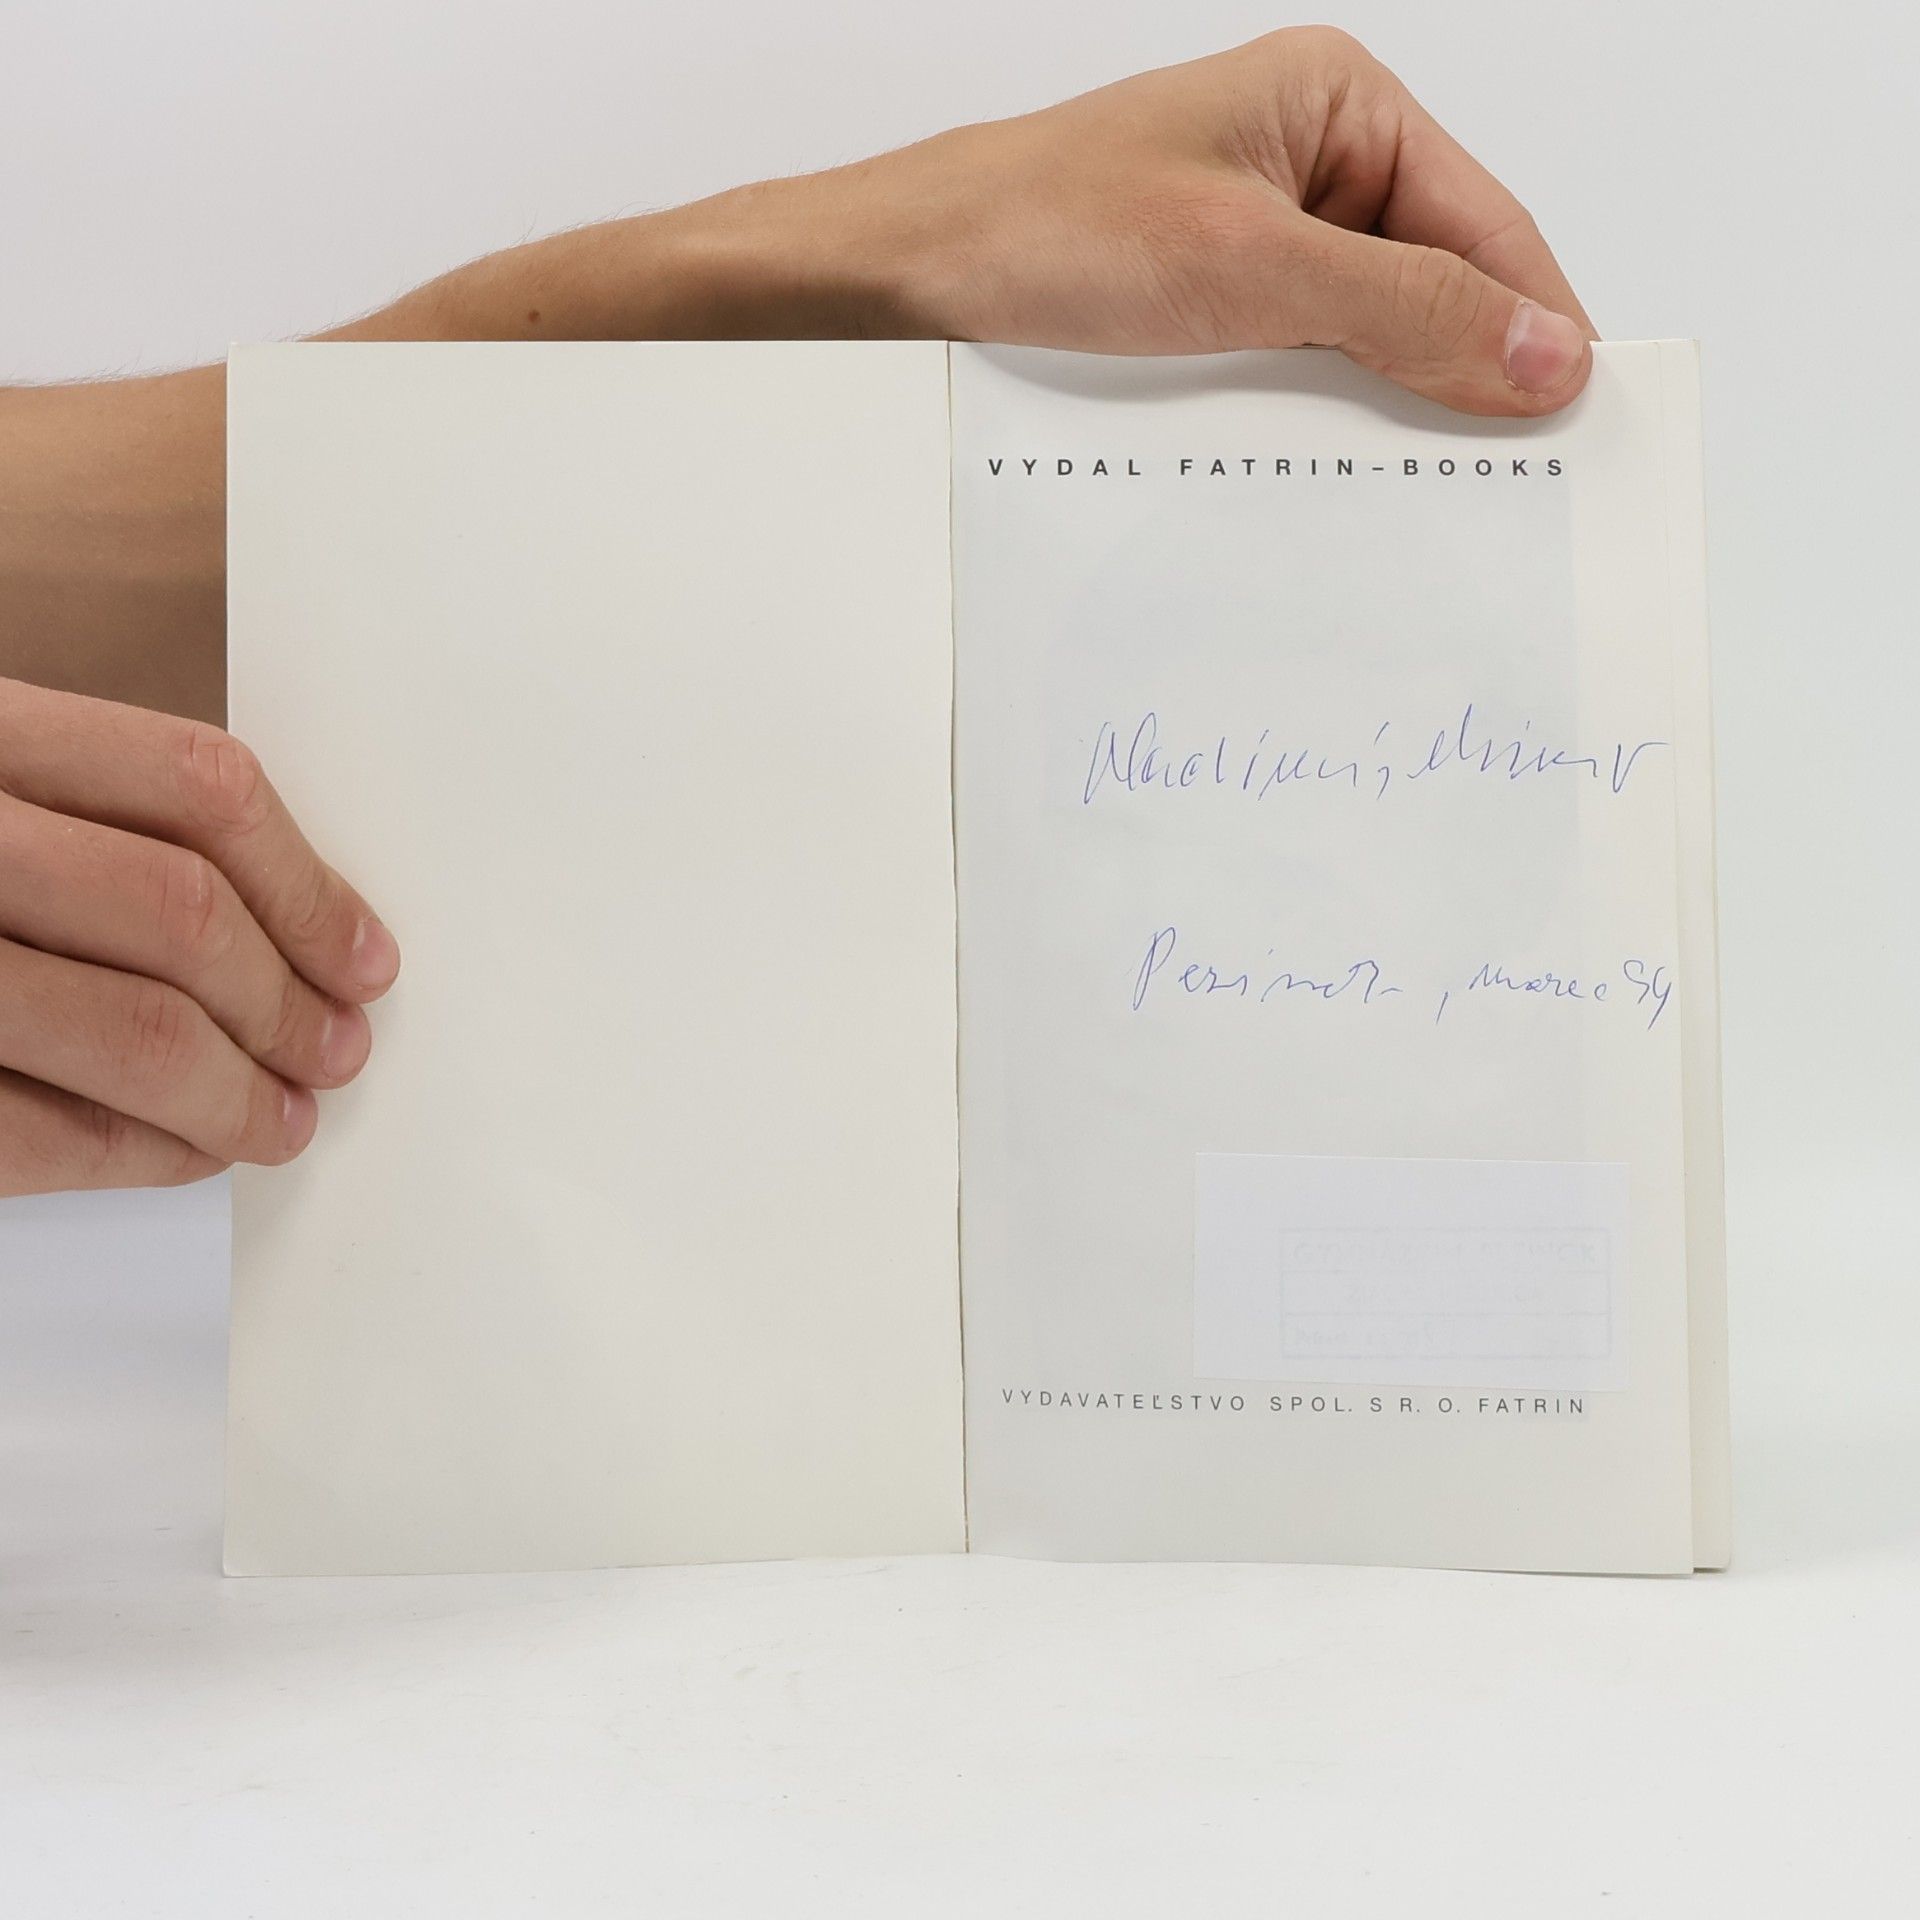 VYDAL FATRIN–BOOKS
Vladimír Mináč
Pezinok, marec 94
GYMNÁZIUM PEZINOK
VYDAVATEĽSTVO SPOL. S R. O. FATRIN